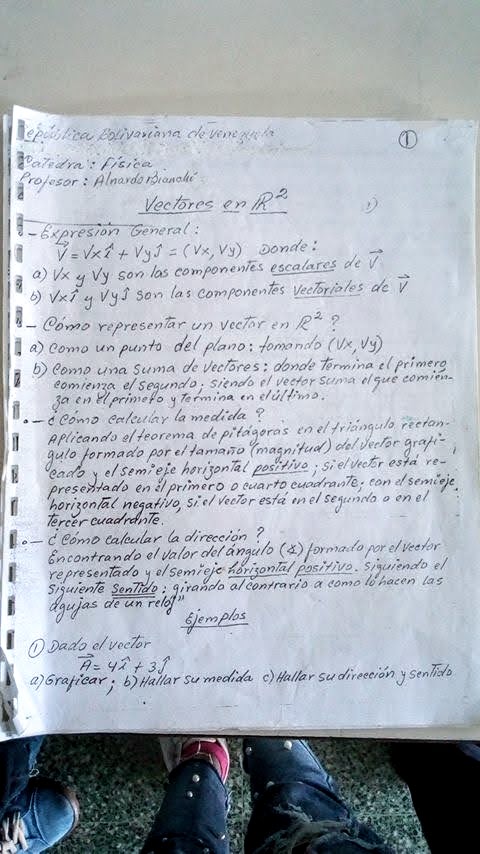 República Bolivariana de Venezuela
①
Catedra: Física
Profesor: Alnardo Bianchi
Vectores en R² 1)
- Expresión General:
V⃗ = Vx î + Vy ĵ = (Vx, Vy) Donde:
a) Vx y Vy son las componentes escalares de V⃗
b) Vx î y Vy ĵ son las componentes vectoriales de V⃗
- Cómo representar un vector en R² ?
a) Como un punto del plano: tomando (Vx, Vy)
b) Como una suma de vectores: donde termina el primero
comienza el segundo; siendo el vector suma el que comien-
za en el primero y termina en el último.
- ¿ Cómo calcular la medida ?
Aplicando el teorema de pitágoras en el triángulo rectan-
gulo formado por el tamaño (magnitud) del vector grafi-
cado y el semieje horizontal positivo; si el vector está re-
presentado en el primero o cuarto cuadrante; con el semieje
horizontal negativo, si el vector está en el segundo o en el
tercer cuadrante.
- ¿ Cómo calcular la dirección ?
Encontrando el valor del ángulo (∡) formado por el vector
representado y el semieje horizontal positivo. Siguiendo el
siguiente sentido: girando al contrario a como lo hacen las
agujas de un reloj"
Ejemplos
① Dado el vector
A⃗ = 4î + 3ĵ
a) Graficar; b) Hallar su medida c) Hallar su dirección y sentido